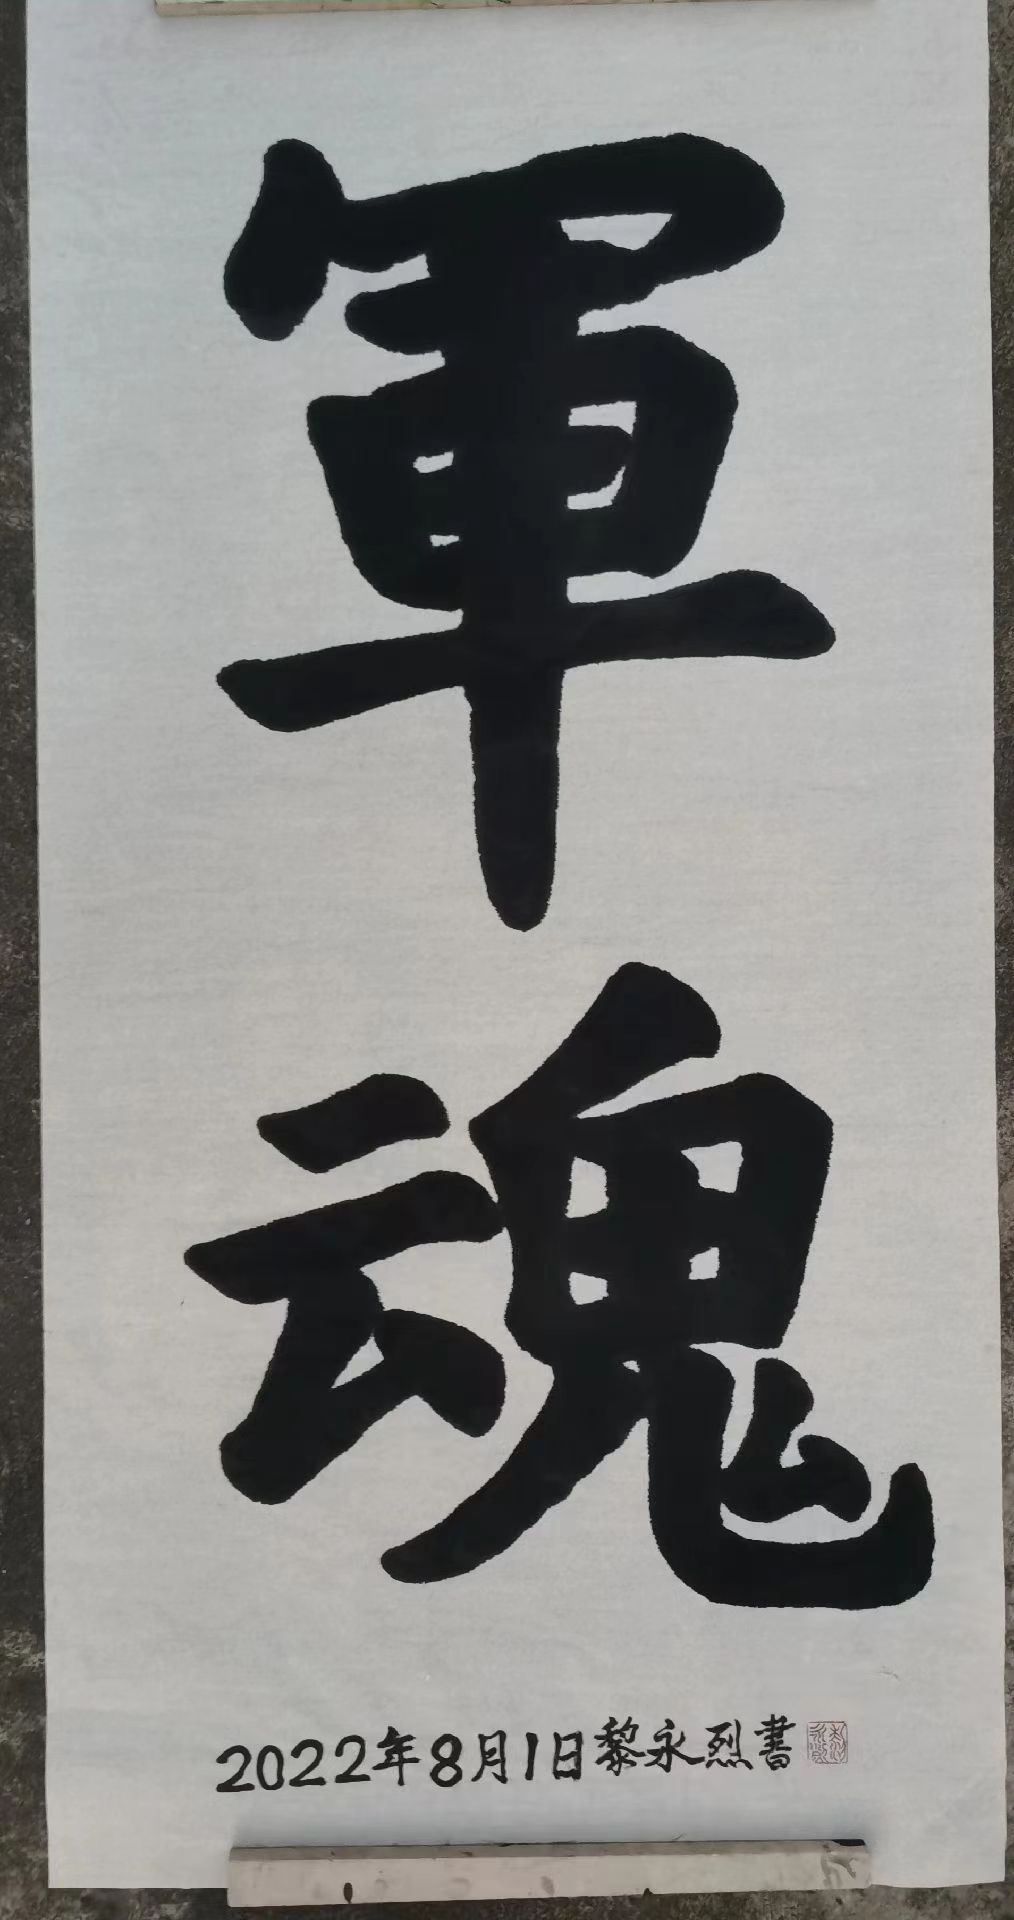 軍
魂
2022年8月1日黎永烈書